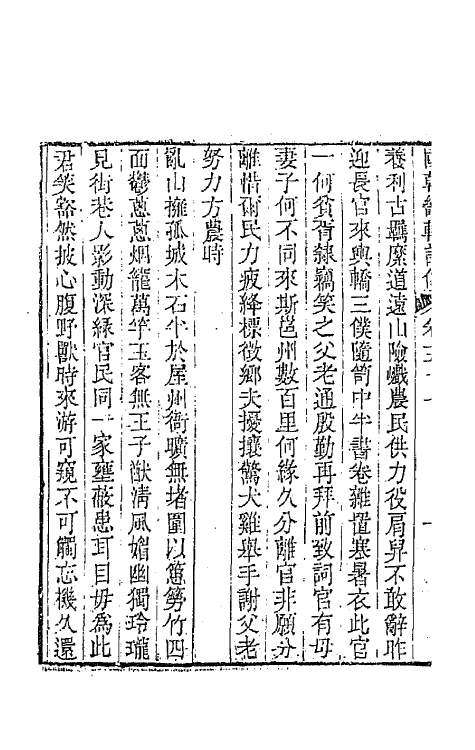 養利古羈縻道遠山險巇農民供力役肩舁不敢辭昨
迎長官來輿轎三僕隨笥中半書卷雜置寒暑衣此官
一何貧胥隸竊笑之父老通殷勤再拜前致詞官有母
妻子何不同來斯邕州數百里何緣久分離官非願分
離惜爾民力疲絳標徵鄉夫擾攘驚犬雞舉手謝父老
努力方農時
亂山擁孤城木石半於屋州衙曠無堵圍以簜竹四
面鬱蔥蔥烟籠萬竿玉客無王子猷清風媚幽獨玲瓏
見街巷人影動深綠官民同一家壅蔽患耳目毋為此
君笑豁然披心腹野獸時來游可窺不可觸忘機久還